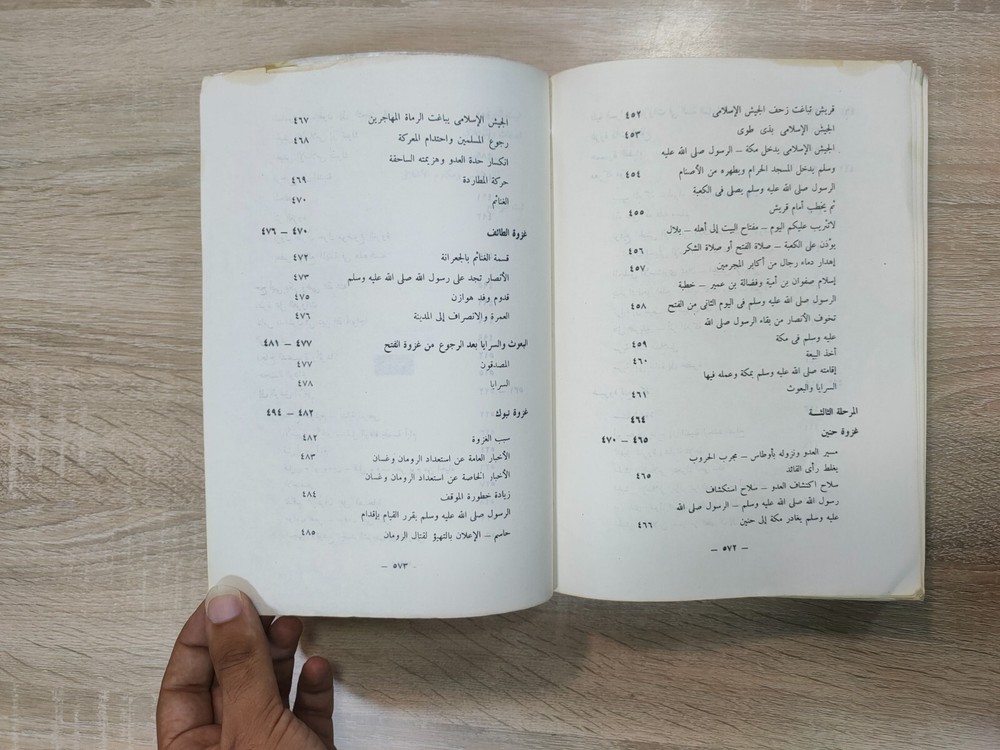 قريش تباغت زحف الجيش الإسلامى ٤٥٢
الجيش الإسلامى بذى طوى ٤٥٣
الجيش الإسلامى يدخل مكة – الرسول صلى الله عليه
وسلم يدخل المسجد الحرام ويطهره من الأصنام ٤٥٤
الرسول صلى الله عليه وسلم يصلى فى الكعبة
ثم يخطب أمام قريش ٤٥٥
لاتثريب عليكم اليوم – مفتاح البيت إلى أهله – بلال
يؤذن على الكعبة – صلاة الفتح أو صلاة الشكر ٤٥٦
إهدار دماء رجال من أكابر المجرمين ٤٥٧
إسلام صفوان بن أمية وفضالة بن عمير – خطبة
الرسول صلى الله عليه وسلم فى اليوم الثانى من الفتح ٤٥٨
تخوف الأنصار من بقاء الرسول صلى الله
عليه وسلم فى مكة ٤٥٩
أخذ البيعة ٤٦٠
إقامته صلى الله عليه وسلم بمكة وعمله فيها
السرايا والبعوث ٤٦١
المرحلة الثالثـة ٤٦٤
غزوة حنين ٤٦٥ – ٤٧٠
مسير العدو ونزوله بأوطاس – مجرب الحروب
يغلط رأى القائد ٤٦٥
سلاح اكتشاف العدو – سلاح استكشاف
رسول الله صلى الله عليه وسلم – الرسول صلى الله
عليه وسلم يغادر مكة إلى حنين ٤٦٦
– ٥٧٢ –
الجيش الإسلامى يباغت الرماة المهاجرين ٤٦٧
رجوع المسلمين واحتدام المعركة ٤٦٨
انكسار حدة العدو وهزيمته الساحقة
حركة المطاردة ٤٦٩
الغنائم ٤٧٠
غزوة الطائف ٤٧٠ – ٤٧٦
قسمة الغنائم بالجعرانة ٤٧٢
الأنصار تجد على رسول الله صلى الله عليه وسلم ٤٧٣
قدوم وفد هوازن ٤٧٥
العمرة والانصراف إلى المدينة ٤٧٦
البعوث والسرايا بعد الرجوع من غزوة الفتح ٤٧٧ – ٤٨١
المصدقون ٤٧٧
السرايا ٤٧٨
غزوة تبوك ٤٨٢ – ٤٩٤
سبب الغزوة ٤٨٢
الأخبار العامة عن استعداد الرومان وغسان ٤٨٣
الأخبار الخاصة عن استعداد الرومان وغسان
زيادة خطورة الموقف ٤٨٤
الرسول صلى الله عليه وسلم يقرر القيام بإقدام
حاسم – الإعلان بالتهيؤ لقتال الرومان ٤٨٥
– ٥٧٣ –